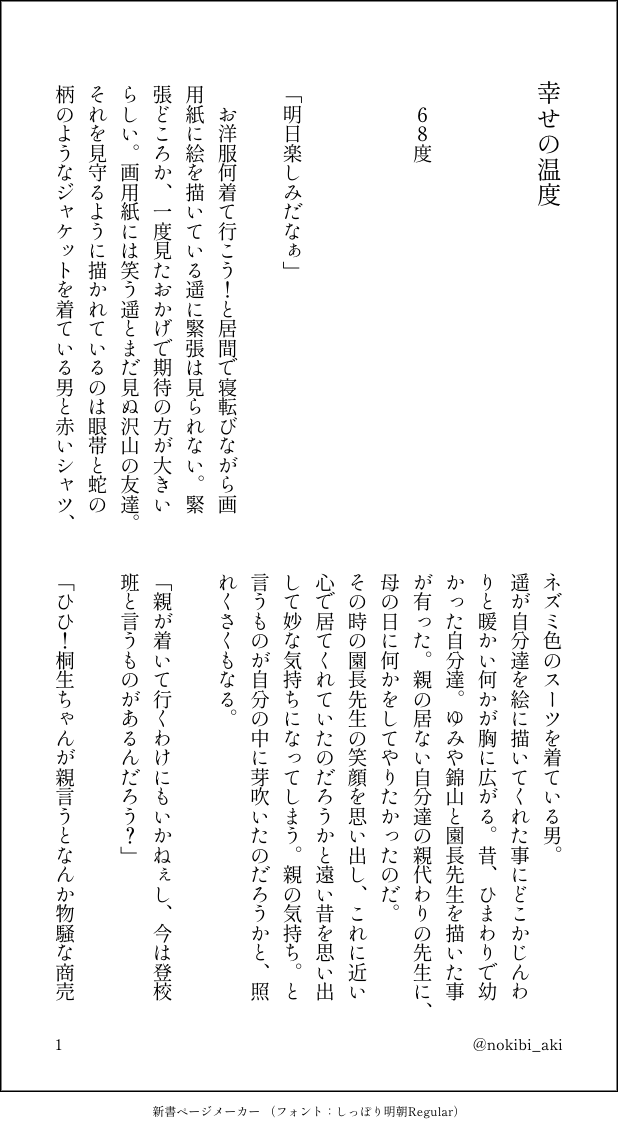 幸せの温度
68度
「明日楽しみだなぁ」
お洋服何着て行こう！と居間で寝転びながら画
用紙に絵を描いている遥に緊張は見られない。緊
張どころか、一度見たおかげで期待の方が大きい
らしい。画用紙には笑う遥とまだ見ぬ沢山の友達。
それを見守るように描かれているのは眼帯と蛇の
柄のようなジャケットを着ている男と赤いシャツ、
ネズミ色のスーツを着ている男。
遥が自分達を絵に描いてくれた事にどこかじんわ
りと暖かい何かが胸に広がる。昔、ひまわりで幼
かった自分達。ゆみや錦山と園長先生を描いた事
が有った。親の居ない自分達の親代わりの先生に、
母の日に何かをしてやりたかったのだ。
その時の園長先生の笑顔を思い出し、これに近い
心で居てくれていたのだろうかと遠い昔を思い出
して妙な気持ちになってしまう。親の気持ち。と
言うものが自分の中に芽吹いたのだろうかと、照
れくさくもなる。
「親が着いて行くわけにもいかねぇし、今は登校
班と言うものがあるんだろう？」
「ひひ！桐生ちゃんが親言うとなんか物騒な商売
@nokibi_aki
1
新書ページメーカー （フォント：しっぽり明朝Regular）